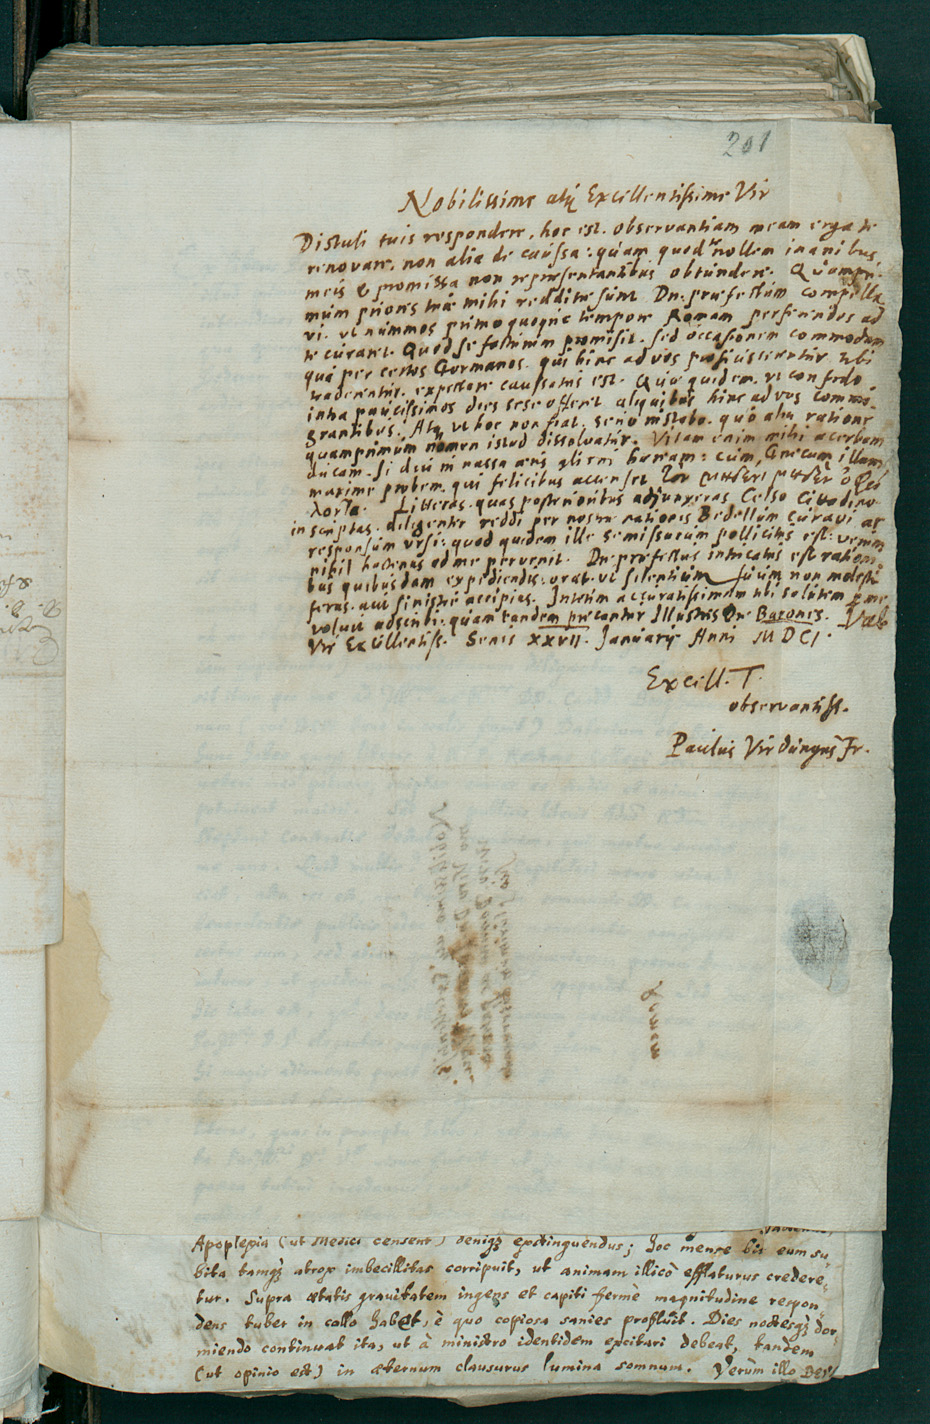 201
Nobilissime atq Excellentissime Vir
Distuli tuis respondere, hoc est, observantiam meam erga te
renovare, non alia de caussa: quam quod nollem inanibus,
meis & promissa non repraesentantibus obtundere. Quampri-
mum prioris tuae mihi redditae sunt Dn: praefectum compella
vi, vt nummos primo quoque tempore Romam perferendos ad
te curaret. Quod se facturum promisit. sed occasionem commodam
qua per certos Germanos, qui hinc ad vos proficiscerentur tibi
traderentur, expectare caussatus est. Quae quidem, vt confido
intra paucissimos dies sese offeret aliquibus hinc ad vos commi-
grantibus. Atq vt hoc non fiat, serio instabo, quo alia ratione
quamprimum nomen istud dissolvatur. Vitam enim mihi acerbam
ducam, si diu in nassa aeris alieni haeream: cum, Graecum illum
maxime probem, qui felicibus accenset τὸν μηδενὶ μηδὲν ὀφεί
λοντα. Litteras, quas posterioribus adjunxeras Celso Cittadino
inscriptas, diligenter reddi per nostrae nationis Bedellum curavi ac
responsum vrsi: quod quidem ille se missurum pollicitus est: verum
nihil hactenus ad me pervenit. Dn: praefectus intricatus est ration-
bus quibusdam expediendis: orat, vt silentium suum non moleste
feras, aut sinistre accipias. Interim accuratissimam tibi salutem a me
voluit adscribi: quam tandem precantur Illustres Dn Barones. Vale
Vir Excellentiss. Senis XXVII. Januarij Anni MDCI.
Excell. T.
observantiss.
Paulus Virdungus Fr.
Romam
Apoplexia (ut Medici censent) deniq extinguendus; hoc mense bis eum su-
bita tamq atrox imbecillitas corripuit, ut animam illico efflaturus credere-
tur. Supra aetatis gravitatem ingens et capiti ferme magnitudine respon-
dens tuber in collo habet, è quo copiosa sanies profluit. Dies noctesq dor-
miendo continuat ita, ut à ministro identidem excitari debeat, tandem
(ut opinio est) in aeternum clausurus lumina somnum. Verum illo